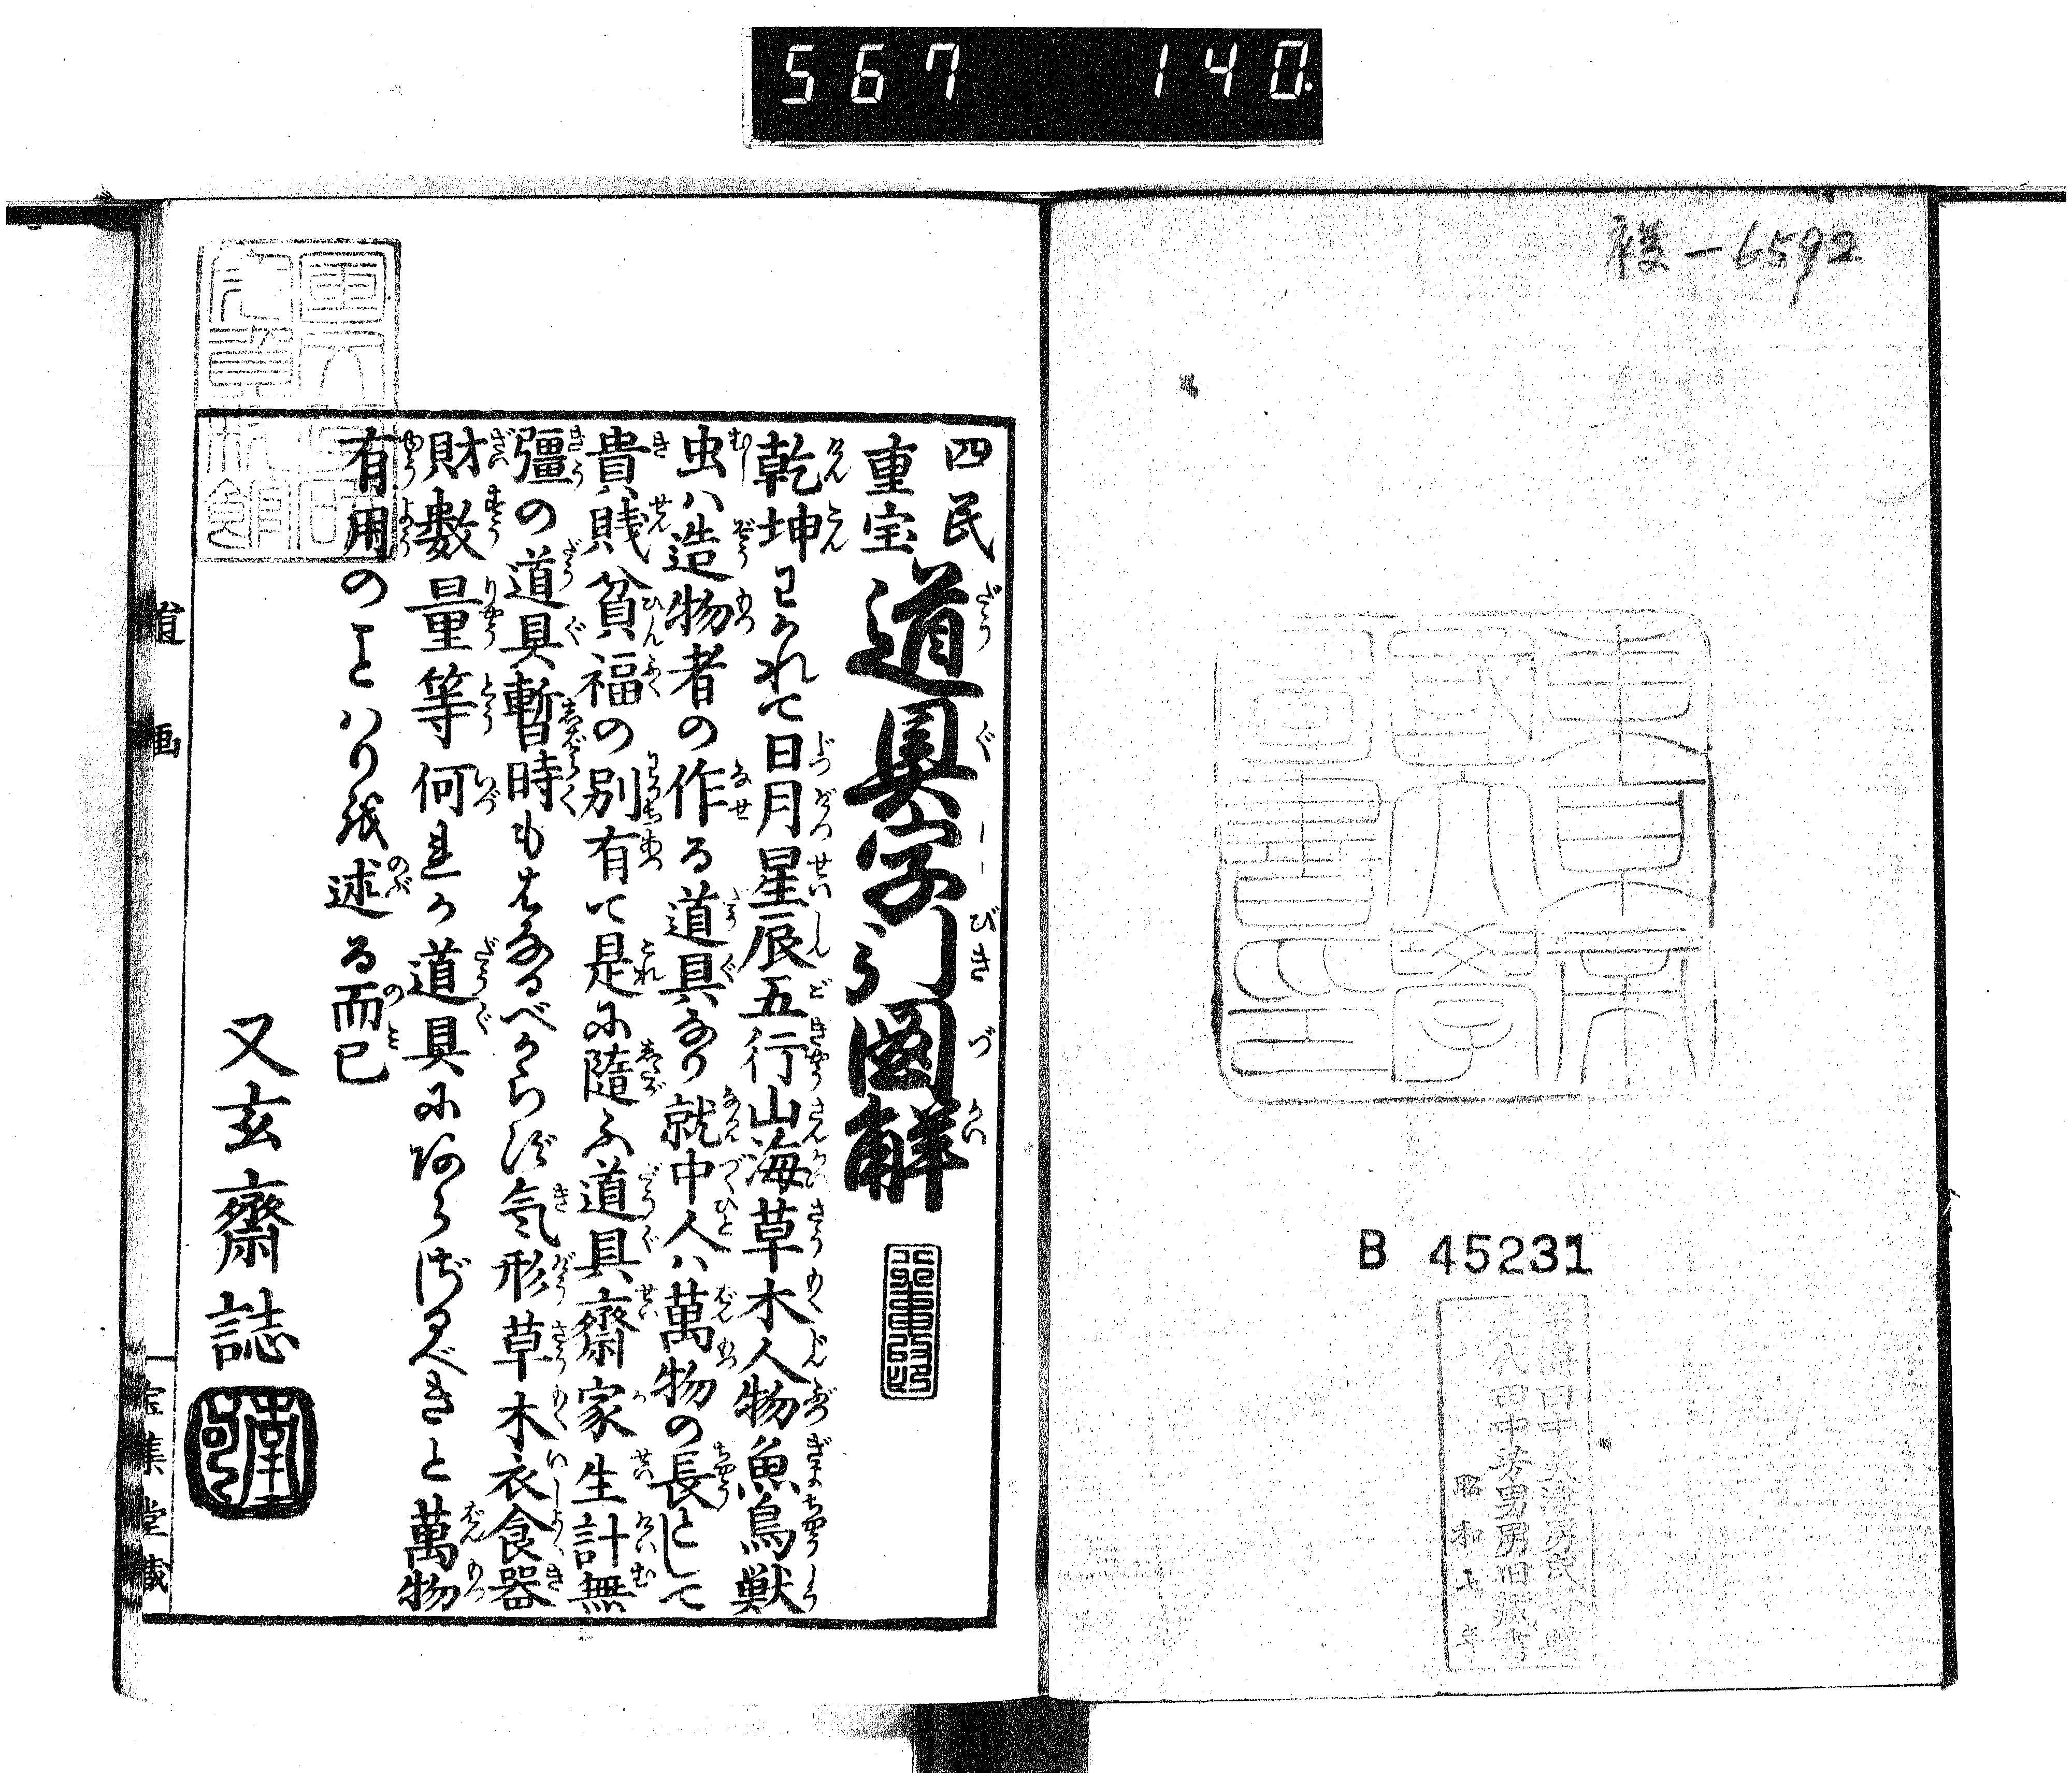 567 140.
襍-6592
東京
帝國大學
圖書印
B 45231
田中芳男男旧蔵書
昭和
四民
重宝
道具字引圖解
乾坤わかれて日月星辰五行山海草木人物魚鳥獣
虫ハ造物者の作る道具なり就中人ハ萬物の長として
貴賎貧福の別有て是に隨ふ道具齋家生計無
彊の道具暫時もはなるべからず氣形草木衣食器
財數量等何れか道具にあらざるべきと萬物
有用のことハりを述る而已
又玄齋誌
道画
一
宝集堂蔵